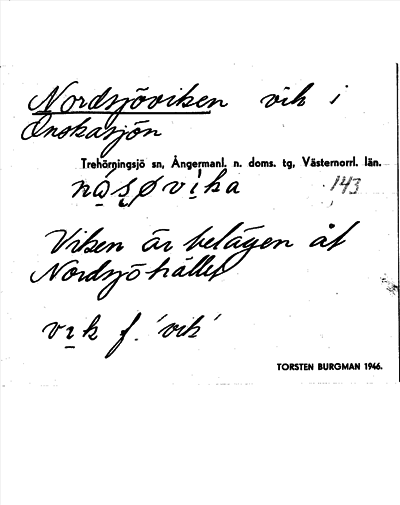 Nordsjöviken vik i
Önskasjön
Trehörningsjö sn, Ångermanl. n. doms. tg, Västernorrl. län.
143
Viken är belägen åt
Nordsjöhållet
vik f. 'vik'
TORSTEN BURGMAN 1946.